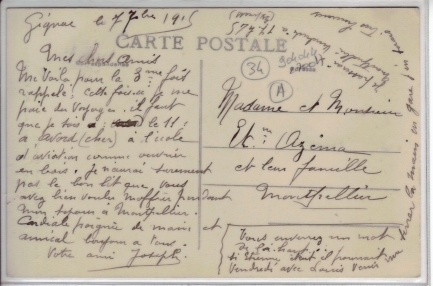 Gignac le 7 7bre 1915
CARTE POSTALE
Mes chers amis
Me Voila pour la 3ème fois
rappelé; cette fois-ci je me
paie du voyage. il faut
que je sois le 11:
a avord (cher) à l'école
d'aviation comme ouvrier
en bois. Je n'aurai surement
pas le bon lit que vous
avez bien voulu m'offrir pendant
mon sejour à Montpellier.
Cordiale poignée de mains et
amical bonjour a tous.
Votre ami Joseph.
34
A
Madame et Monsieur
Et. Azéma
et leur famille
Montpellier
Vous enverrez un mot
si Etienne était il pourrait
Vendredi avec Louis venir
me serrer la main en gare